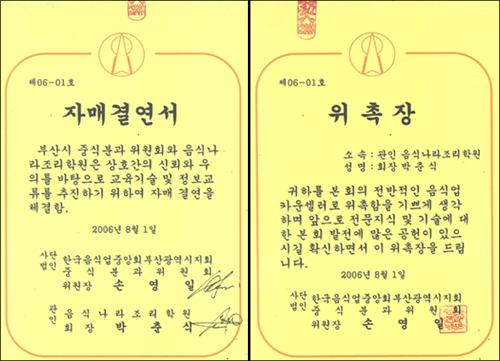 제06-01호
자매결연서
부산시 중식분과 위원회와 음식나
라조리학원은 상호간의 신뢰와 우
의를 바탕으로 교육기술 및 정보교
류를 추진하기 위하여 자매 결연을
체결함.
2006년 8월 1일
사단
법인 한국음식업중앙회부산광역시지회
중식분과위원회
위원장 손영일
관
인 음식나라조리학원
회장 박춘식
제06-01호
위촉장
소속 : 관인 음식나라조리학원
성명 : 회장 박춘식
귀하를 본 회의 전반적인 음식업
카운셀러로 위촉함을 기쁘게 생각
하며 앞으로 전문지식 및 기술에 대
한 본회 발전에 많은 공헌이 있으
시길 확신하면서 이 위촉장을 드립
니다.
2006년 8월 1일
사단
법인 한국음식업중앙회부산광역시지회
중식분과위원회
위원장 손영일